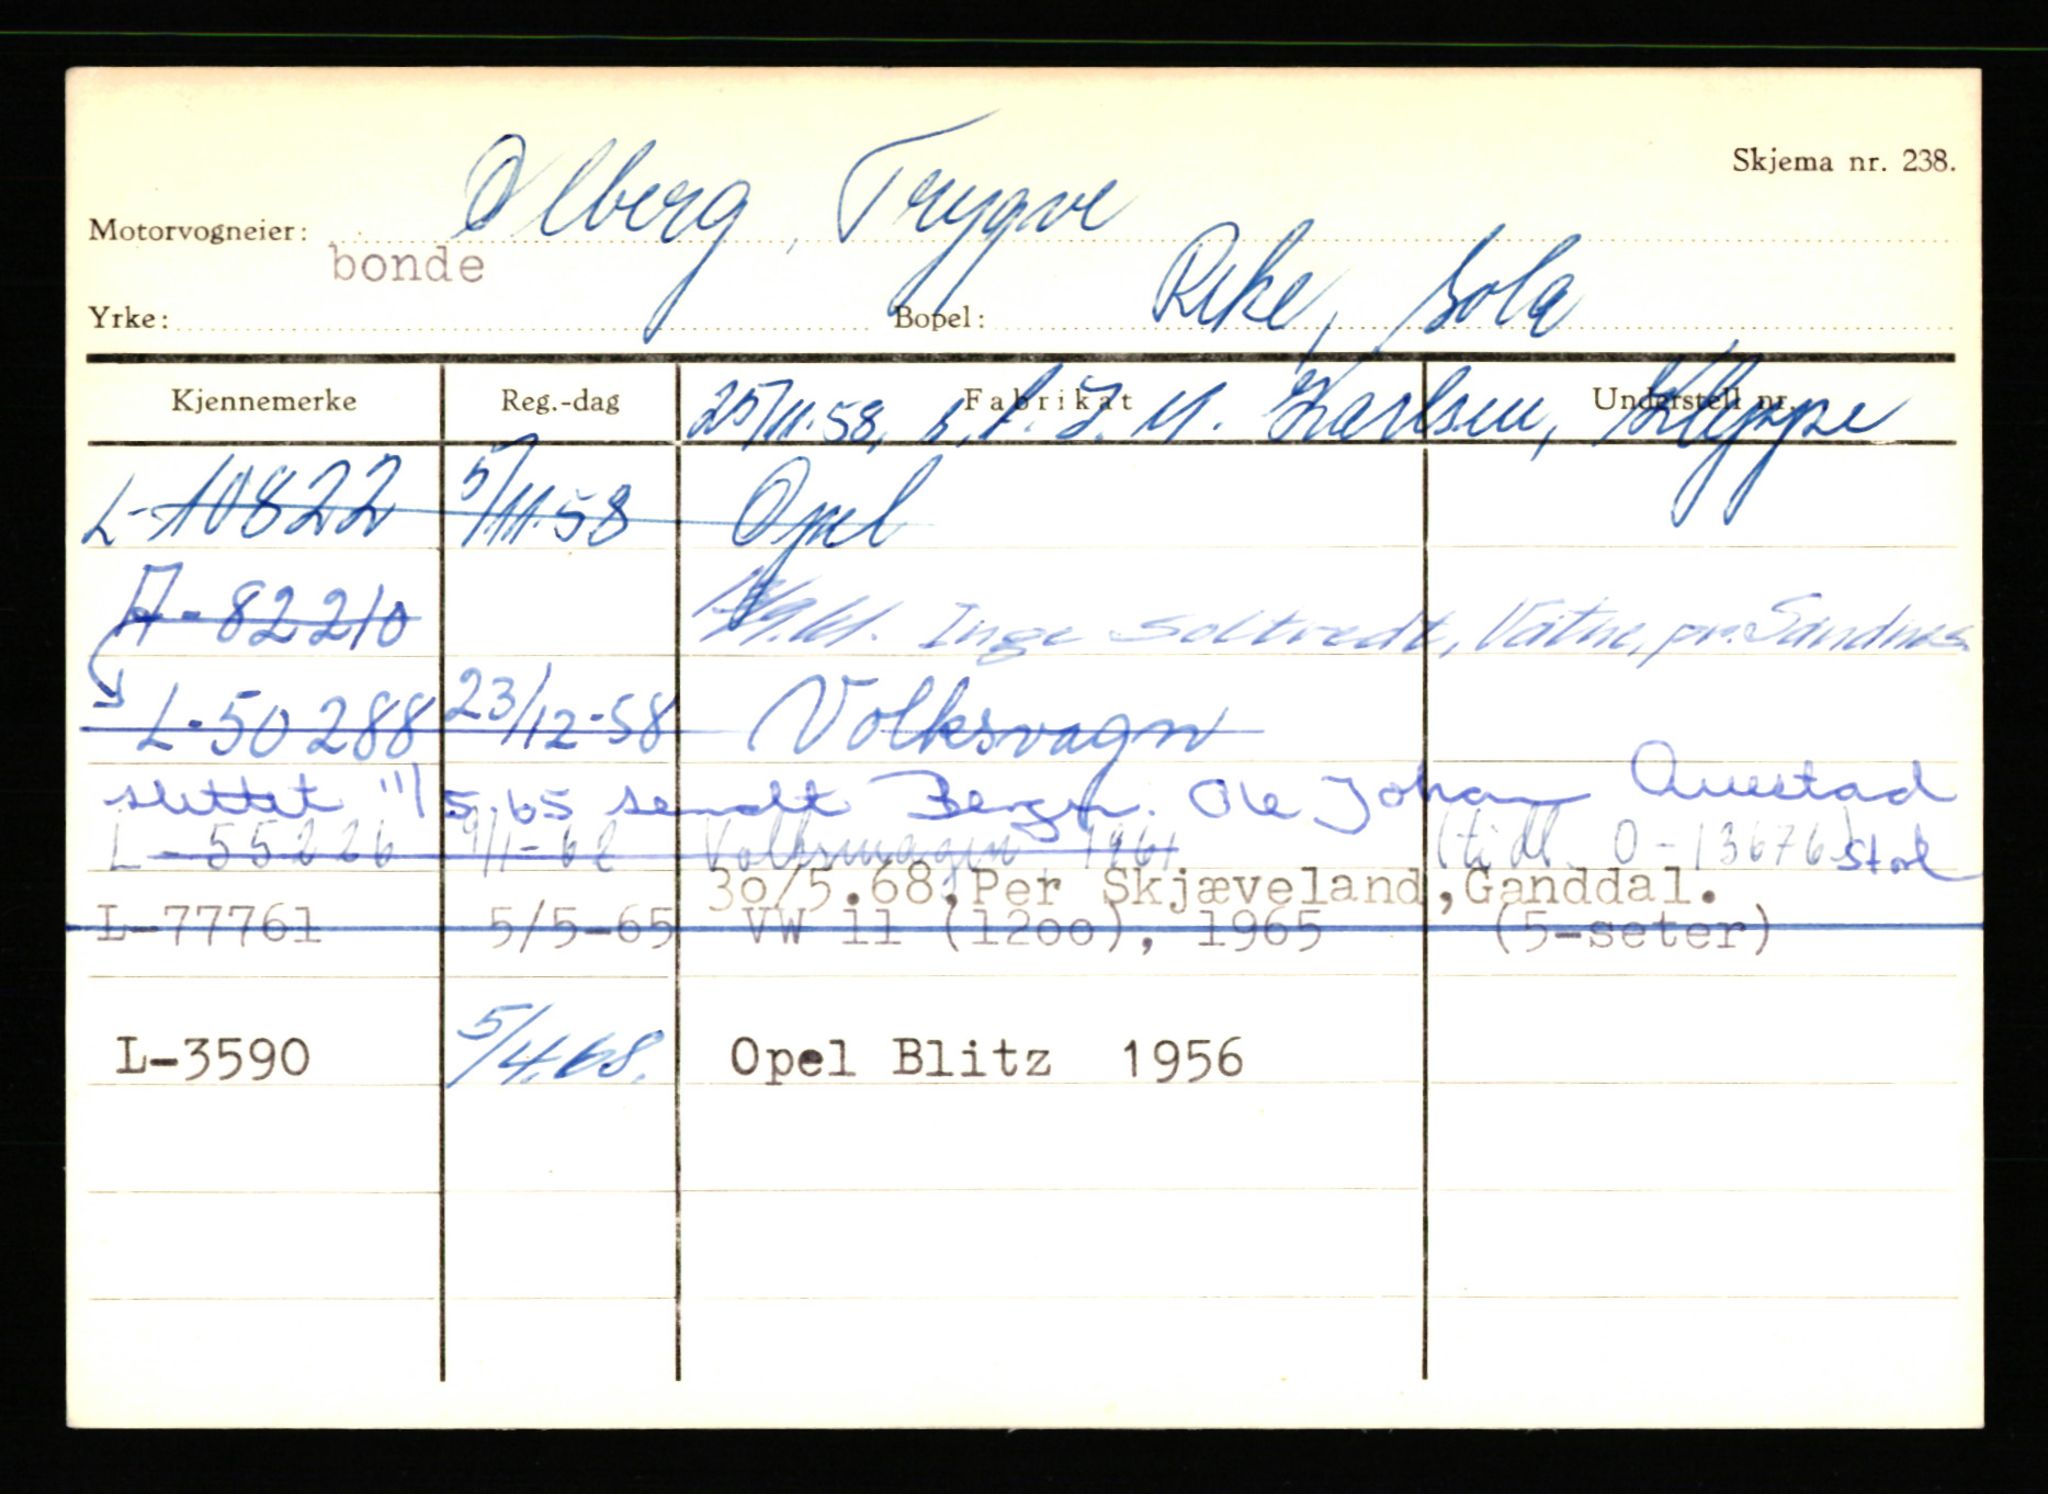 Skjema nr. 238.
Motorvogneier: Ølberg, Trygve
bonde
Yrke: Bopel: Reke, Sola
Kjennemerke Reg.-dag Fabrikat Understell nr.
25/11.58, J. M. Karlsen, Kleppe
L-10822 5/11.58 Opel
A-82210 Inge Soltvedt, Vatne, pr. Sandnes
L-50288 23/12-58 Volksvagn
slettet 11/5.65 sendt Bergen. Ole Johan Auestad
L-55226 9/1-62 Volkswagen 1961 (tidl. O-13676) Stol
30/5.68, Per Skjæveland, Ganddal.
L-77761 5/5-65 VW 11 (1200), 1965 (5-seter)
L-3590 5/4.68. Opel Blitz 1956